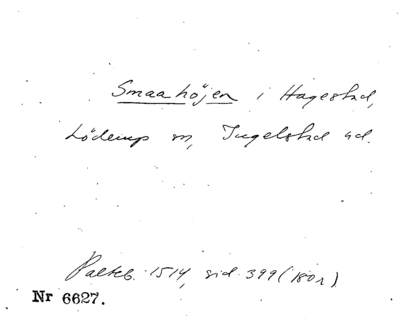 Smaahöjen i Hagestad,
Löderup sn, Ingelstad hd.
Palteb. 1514, sid. 399 (180r)
Nr 6627.